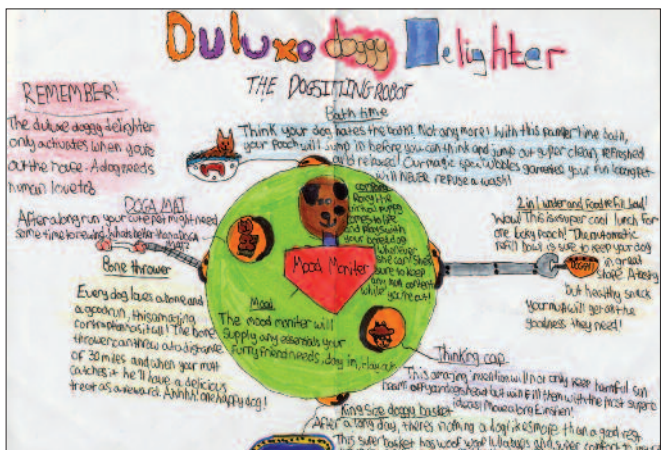 Duluxe doggy Delighter
THE DOGSITTING ROBOT
REMEMBER!
The duluxe doggy delighter
only activates when you're
out the house. A dog needs
human love to
Bath time
Think your dog hates the bath? Not any more! With this pamper time bath,
your pooch will jump in before you can think and jump out super clean, refreshed
and relaxed! Our magic specubbles garentees your fun loving pet
will NEVER refuse a wash!
DOGA MAT
After a long run your cute pet might need
some time to rewind. Whats better than a DOGA
MAT?
Bone thrower
Every dog loves a bone and
a good run, this amazing
contraption has it all! The bone
thrower can throw at a distance
of 30 miles and when your mutt
catches it he'll have a delicious
treat as a reward. Ahhhh! one happy dog!
Roxy the
virtual puppy
comes to life
and plays with
your bored dog
whenever
she can! She's
sure to keep
any mutt content
while you're out!
Mood Moniter
Mood
The mood moniter will
supply any essentials your
furry friend needs, day in, day out
2 in 1 water and food refill bowl!
Wow! This is super cool lunch for
one lucky pooch! The automatic
refill bowl is sure to keep your dog
in great
shape. A tasty
but healthy snack
your mutt will get all the
goodness they need!
DOGGY
Thinking cap
This amazing invention will not only keep harmful sun
beams off your dogs head but will fill them with the most superb
ideas! Move along Einstien!
King Size doggy basket
After a long day, there's nothing a dog likes more than a good rest
This super basket has woof woof lullabys and super comfort to